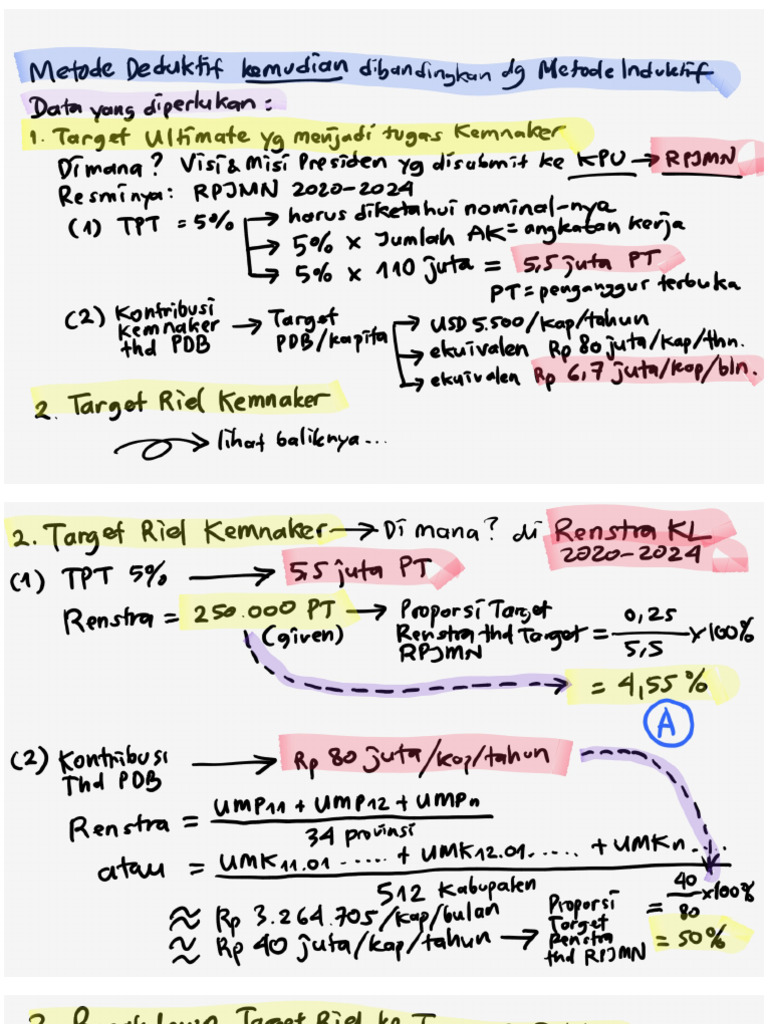 Metode Deduktif kemudian dibandingkan dg Metode Induktif
Data yang diperlukan :
1. Target Ultimate yg menjadi tugas Kemnaker
Di mana? Visi & Misi Presiden yg disubmit ke KPU → RPJMN
Resminya: RPJMN 2020-2024
(1) TPT = 5% → harus diketahui nominal-nya
→ 5% x Jumlah AK = angkatan kerja
→ 5% x 110 juta = 5,5 juta PT
PT = penganggur terbuka
(2) Kontribusi Kemnaker thd PDB → Target PDB/kapita → USD 5.500/kap/tahun
→ ekuivalen Rp 80 juta/kap/thn.
→ ekuivalen Rp 6,7 juta/kap/bln.
2. Target Riel Kemnaker
→ lihat baliknya...
2. Target Riel Kemnaker → Di mana? di Renstra KL
2020-2024
(1) TPT 5% → 5,5 juta PT
Renstra = 250.000 PT → Proporsi Target
(given) Renstra thd Target = 0,25 / 5,5 x 100%
RPJMN
= 4,55%
A
(2) Kontribusi → Rp 80 juta/kap/tahun
Thd PDB
Renstra = UMP11 + UMP12 + UMPn
34 provinsi
atau = UMK11.01 ..... + UMK12.01. ..... + UMKn...
512 Kabupaten
≈ Rp 3.264.705/kap/bulan
≈ Rp 40 juta/kap/tahun → Proporsi Target Renstra thd RPJMN = 40 / 80 x 100%
= 50%